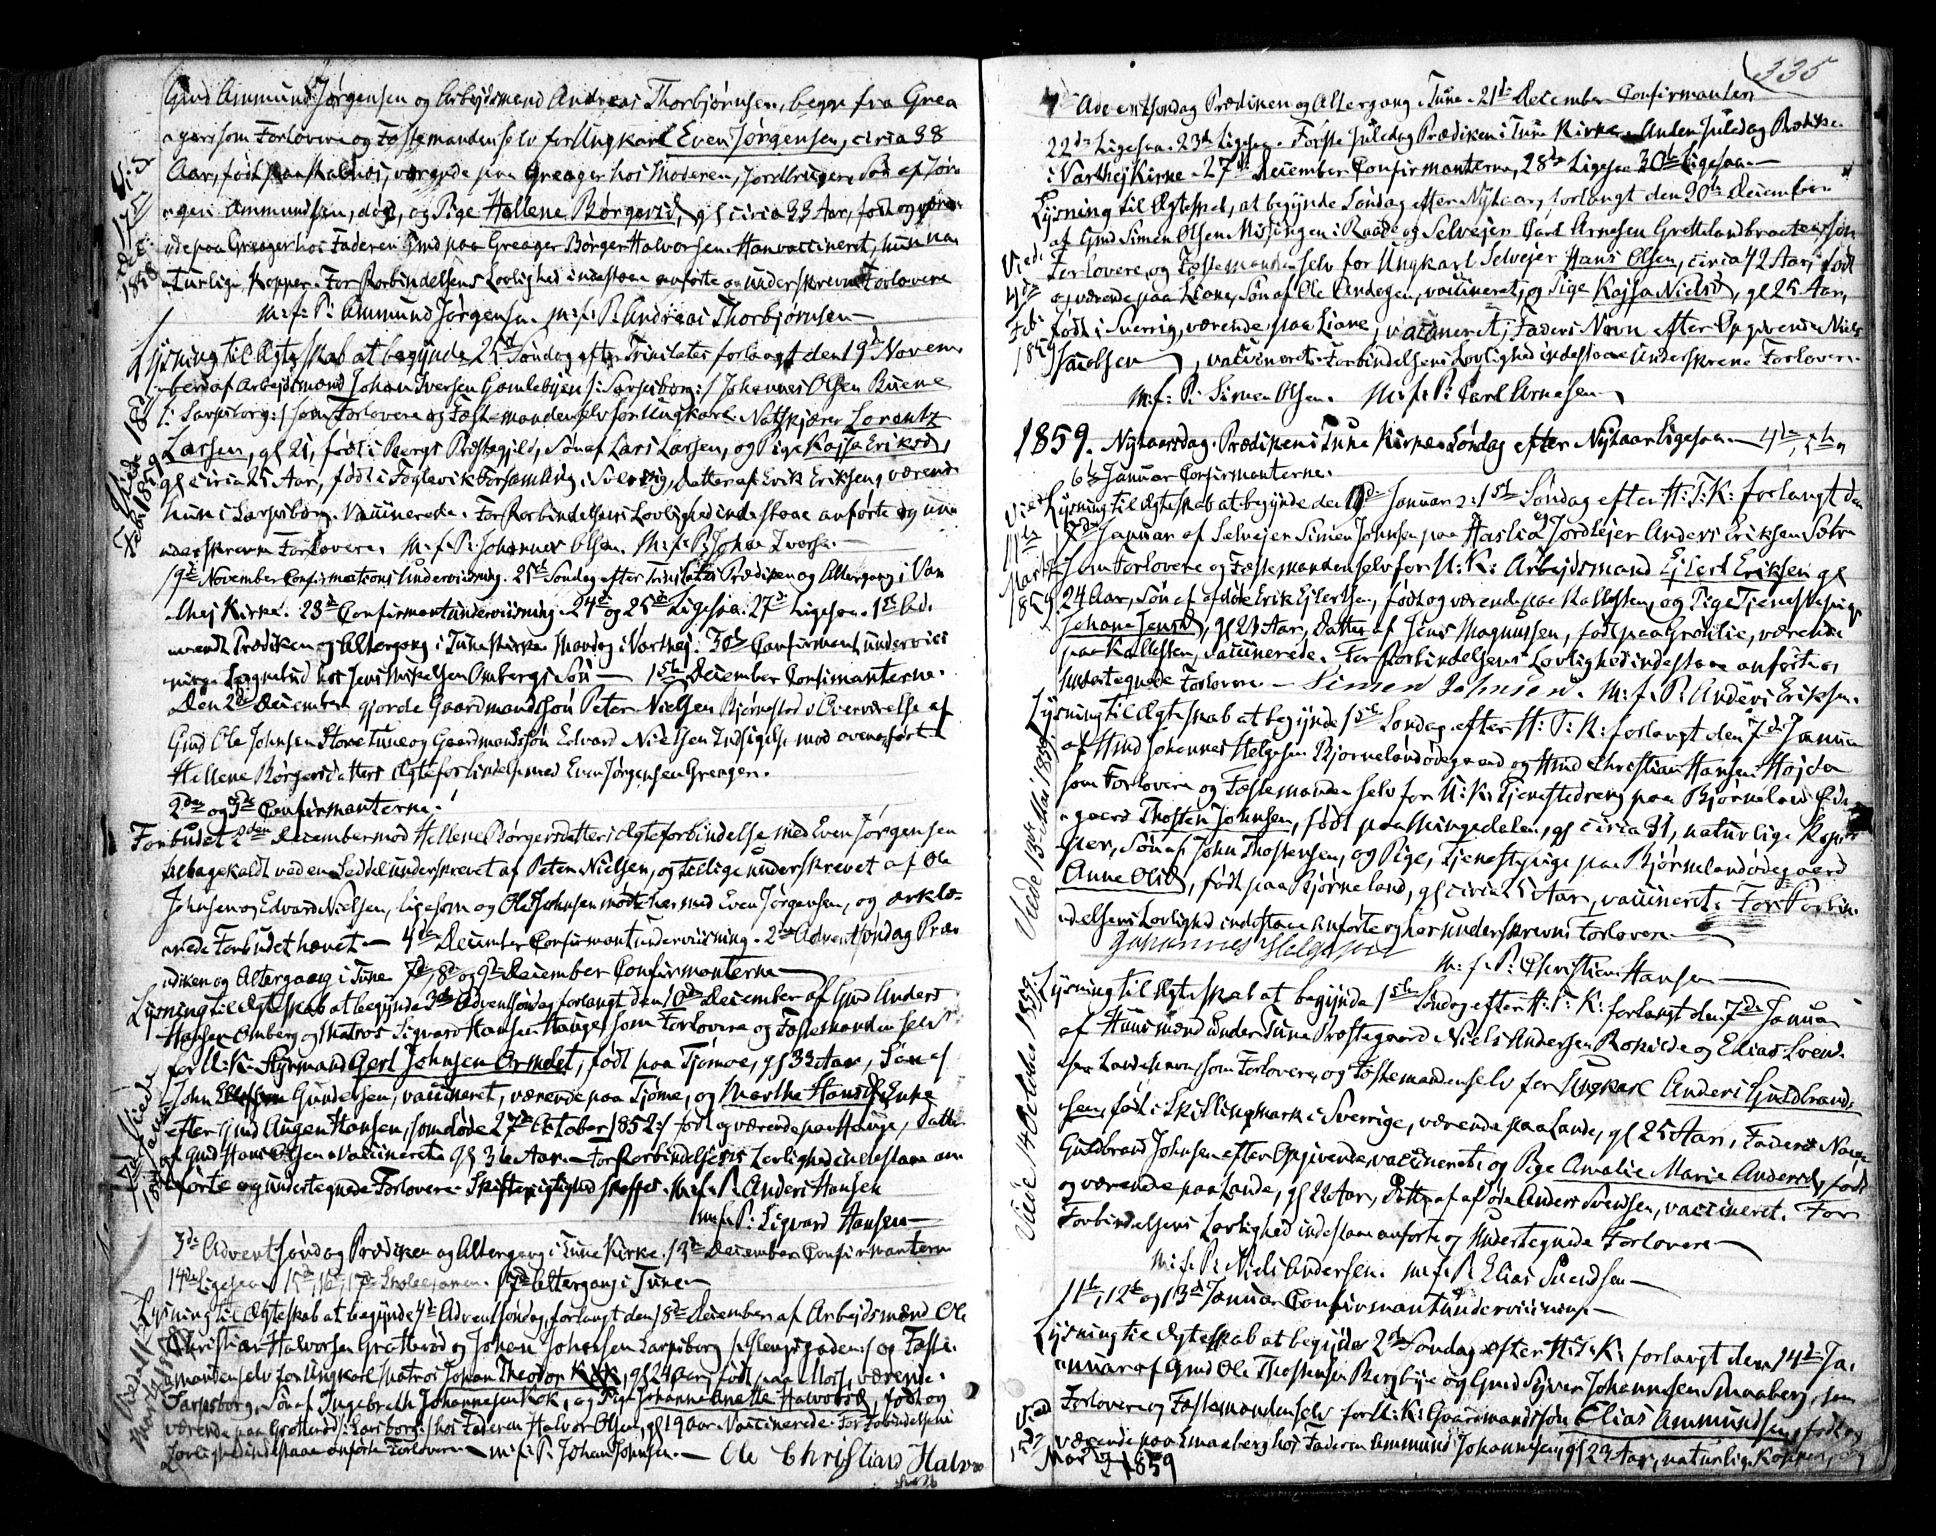 Gmd Ammund Jørgensen og Arbejdsmand Andreas Thorbjørnsen, begge fra Grea
ger som Forlovere og Fæstemanden selv for Ungkarl Even Jørgensen, circa 38
Aar, født paa værende paa Greager hos Moderen, Jordbruger, Søn af Jør
gen Ammundsen, død, og Pige Hellene Børgersd, gl circa 33 Aar, født og være
nde paa Greager hos Faderen Gmd paa Greager Børger Halvorsen. Han vaccineret, hun na
turlige Kopper. For Forbindelsens Lovlighed indestaae anførte og underskrevne Forlovere
m. f. P: Ammund Jørgensen. m. f. P. Andreas Thorbjørnsen
Viet 17de Dec: 1858
Lysning til Ægteskab at begynde 25de Søndag efter Trinitatis forlangt den 19de Novem
ber af Arbejdsmand Johan Iversen Gamlebyen /: Sarpsborg :/ Johannes Olsen Ruene
/: Sarpsborg :/ som Forlovere og Fæstemanden selv for Ungkarl Natskjører Lorentz
Larsen, gl 21, født i Bergs Præstegjeld, Søn af Lars Larsen, og Pige Kajsa Eriksd,
gl circa 25 Aar, født i Foglevik Forsamling i Sverrig, Datter af Erik Eriksen, værende
hun i Sarpsborg. Vaccinerede. For Forbindelsens Lovlighed indestaae anførte og un
derskrevne Forlovere. M. f. P. Johannes Olsen. M. f. P. Johan Iversen.
Viede 18de Feb: 1859
19de November Confirmations Underviisning. 25de Søndag efter Trinitatis Prædiken og Altergang i Var
thej Kirke. 23de Confirmantunderviisning. 24de og 25de Ligesaa. 27de Ligesaa. 1ste Ad
vendt Prædiken og Altergang i Tune Kirke. Mandag i Varthej. 30de Confirmant underviis
ning. Sognebud hos Jens Mikkelsen Ombergs Søn — 1ste December Confirmanterne.
Den 2den December gjorde Gaardmandssøn Peter Nielsen Bjørnstad i Overværelse af
Gmd Ole Johnsen Store Tune og Gaardmandssøn Edvard Nielsen Indsigelse mod ovenanført
Hellene Børgersdatters Ægteforbindelse med Even Jørgensen Greager.
2den og 3de Confirmanterne.
Forbudet 2den December mod Hellene Børgersdatters Ægteforbindelse med Even Jørgensen
tilbagekaldt ved en Seddel underskrevet af Peter Nielsen, og tillige underskrevet af Ole
Johnsen og Edvard Nielsen, ligesom og Ole Johnsen mødte her med Even Jørgensen, og erklæ
rede Forbudet hævet — 4de December Confirmantunderviisning. 2den Adventsøndag Præ
diken og Altergang i Tune 7de, 8de og 9de December Confirmanterne
Lysning til Ægteskab at begynde 3die Adventsøndag forlangt den 10de December af Gmd Anders
Hansen Omberg og Matros Sigvard Hansen Hauge som Forlovere og Fæstemanden selv
for U. K. Styrmand Gerl Johnsen Ormelet, født paa Tjømøe, gl 33 Aar, Søn af
John Gundersen, vaccineret, værende paa Tjøme, og Marthe Hansd, Enke
efter Gmd Augen Hansen, som døde 27de October 1852 :/ født og værende paa Hauge, Datter
af Gmd Hans Olsen. Vaccineret. gl 36 Aar. For Forbindelsens Lovlighed indestaae an
førte og undertegnede Forlovere. Skifterigtighed skaffes. M. f. P. Anders Hansen
m. f. P: Sigvard Hansen
Viede 1859
3de Adventsøndag Prædiken og Altergang i Tune Kirke. 13de December Confirmanterne
14de Ligesaa 15de, 16de, 17de Skoleexamen. 17de Altergang i Tune
Lysning til Ægteskab at begynde 4de Adventsøndag, forlangt den 18de December af Arbejdsmænd Ole
Christian Halvorsen Grotterød og Johan Johnsen Sarpsborg /: :/ og Fæste
manden selv for Ungkarl Matros Johan Theodor Kok, gl 24 Aar, født paa Moss, værende
Sarpsborg, Søn af Ingebreth Johannesen Kok, og Pige Johanne Anette Halvorsd, født og
værende paa Grotterød /: Sarpsborg :/ hos Faderen Halvor Olsen, gl 19 Aar. Vaccinerede. For Forbindelsens
Lovlighed indestaae anførte Forlovere. m. f. P. Johan Johnsen. Ole Christian Halvor
sen
335
4de Adventsøndag Prædiken og Altergang i Tune. 21de December Confirmanter
22de Ligesaa. 23de Ligesaa. Første Juledag Prædiken i Tune Kirke. Anden Juledag Prædike
i Varthej Kirke. 27de December Confirmanterne, 28de Ligesaa 30de Ligesaa.
Lysning til Ægtesked, at begynde Søndag efter Nytaar, forlangt den 30de December
af Gmd Simen Olsen Missingen i Raade og Selvejer Carl Arnesen Gretlandbraaten som
Forlovere, og Fæstemanden selv for Ungkarl Selvejer Hans Olsen, circa 42 Aar, født
og værende paa Liane, Søn af Ole Andersen, vaccineret, og Pige Kajsa Nielsd, gl 25 Aar,
født i Sverrig, værende paa Liane, vaccineret, Faders Navn efter Opgivende Niels
Jacobsen, vaccineret. Forbindelsens Lovlighed indestaae underskrevne Forlovere.
M. f. P. Simen Olsen. M. f. P: Carl Arnesen
Viede 4de Feb: 1859
1859. Nytaarsdag. Prædiken i Tune Kirke. Søndag efter Nytaar Ligesaa. 4de, 5te,
6te Januar Confirmanterne.
Lysning til Ægteskab at begynde den 9de Januar ɔ: 1ste Søndag efter H: T: K: forlangt den
7de Januar af Selvejer Simen Johnsen paa Haslia og Jordlejer Anders Eriksen
som Forlovere og Fæstemanden selv for U: K: Arbejdsmand Ejlert Eriksen gl
24 Aar, Søn af afdøde Erik Ejlertsen, født og værende paa Kallesten, og Pige Tjenestepige
Johane Jensd, gl 23 Aar, Datter af Jens Magnussen, født paa Grønlie, værende
paa Kallesten, vaccinerede. For Forbindelsens Lovlighed indestaae anførte og
undertegnede Forlovere — Simen Johnsen. M. f. P. Anders Eriksen.
Viede 11te Marts 1859
Lysning til Ægteskab at begynde 1ste Søndag efter H: T: K: forlangt den 7de Janua
af Hmd Johannes Helgesen Bjørnelandødegaard og Hmd Christian Hansen Højda
som Forlovere og Fæstemanden selv for U: K: Tjenestedreng paa Bjørneland Øde
gaard Thosten Johnsen, født paa Mingedalen, gl circa 31, naturlige Kop
per, Søn af John Thostensen, og Pige, Tjenestepige paa Bjørnelandødegaard
Anne Olsd, født paa Bjørneland, gl circa 25 Aar, vaccineret. For Forbin
delsens Lovlighed indestaae anførte og her underskrevne Forlovere.
Johannes Helgesen
M. f. P: Christian Hansen
Viede 13de Mai 1859
Lysning til Ægteskab at begynde 1ste Søndag efter H: T: K: forlangt den 7de Januar
af Huusmænd under Tune Præstegaard Niels Andersen Roskilde og Elias Svend
sen Landehavn, som Forlovere, og Fæstemanden selv for Ungkarl Anders Guldbrand
sen, født i Skillingmark i Sverrige, værende paa Lande, gl 25 Aar, Faders Navn
Guldbrand Johnsen efter Opgivende, vaccineret, og Pige Amalie Marie Andersd, født
og værende paa Lande, gl 22 Aar, Datter af afdøde Anders Svensen, vaccineret. For
Forbindelsens Lovlighed indestaae anførte og Undertegnede Forlovere
M. f. P. Niels Andersen. m. f. P. Elias Svendsen
Viede 14 October 1859
11te, 12te og 13de Januar Confirmantunderviisning
Lysning til Ægteskab at begynde 2den Søndag efter H: T: K: forlangt den 14de Ja
nuar af Gmd Ole Thostensen Bergbye og Gmd Syver Johannesen Smaaberg, som
Forlovere og Fæstemanden selv for U: K: Gaardmandssøn Elias Ammundsen, født og
værende paa Smaaberg hos Faderen Ammund Johannesen, gl 23 Aar, naturlige Kopper, og
Viede 1859